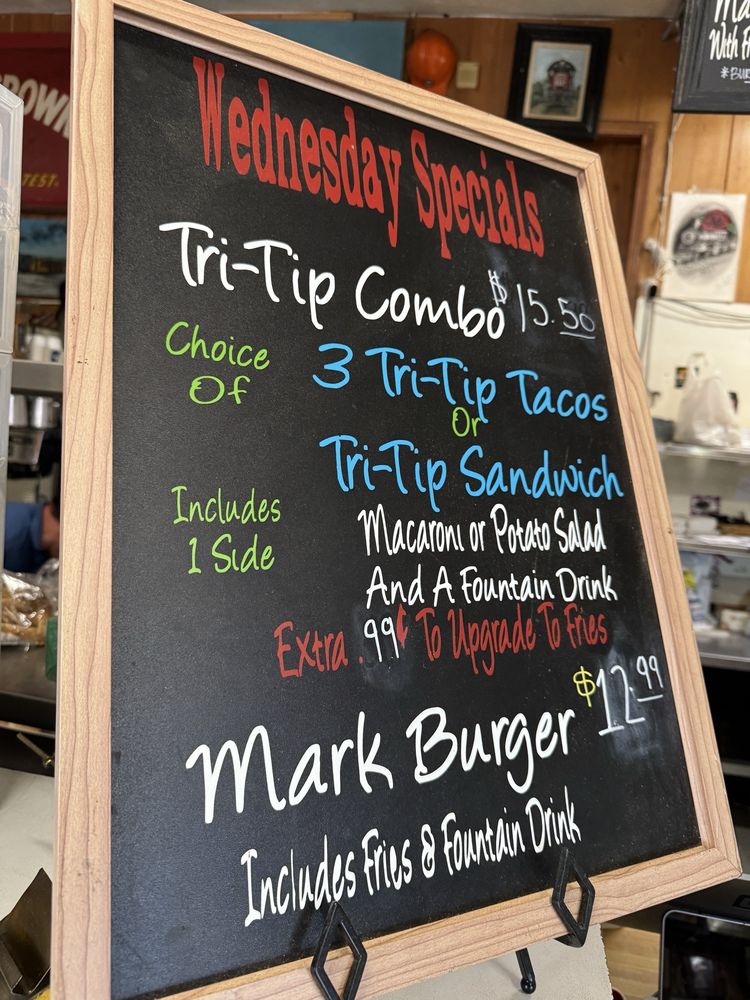 Wednesday Specials
Tri-Tip Combo $15.50
Choice Of
3 Tri-Tip Tacos
Or
Tri-Tip Sandwich
Includes 1 Side
Macaroni or Potato Salad
And A Fountain Drink
Extra .99¢ To Upgrade To Fries
Mark Burger $12.99
Includes Fries & Fountain Drink
With
TEST.